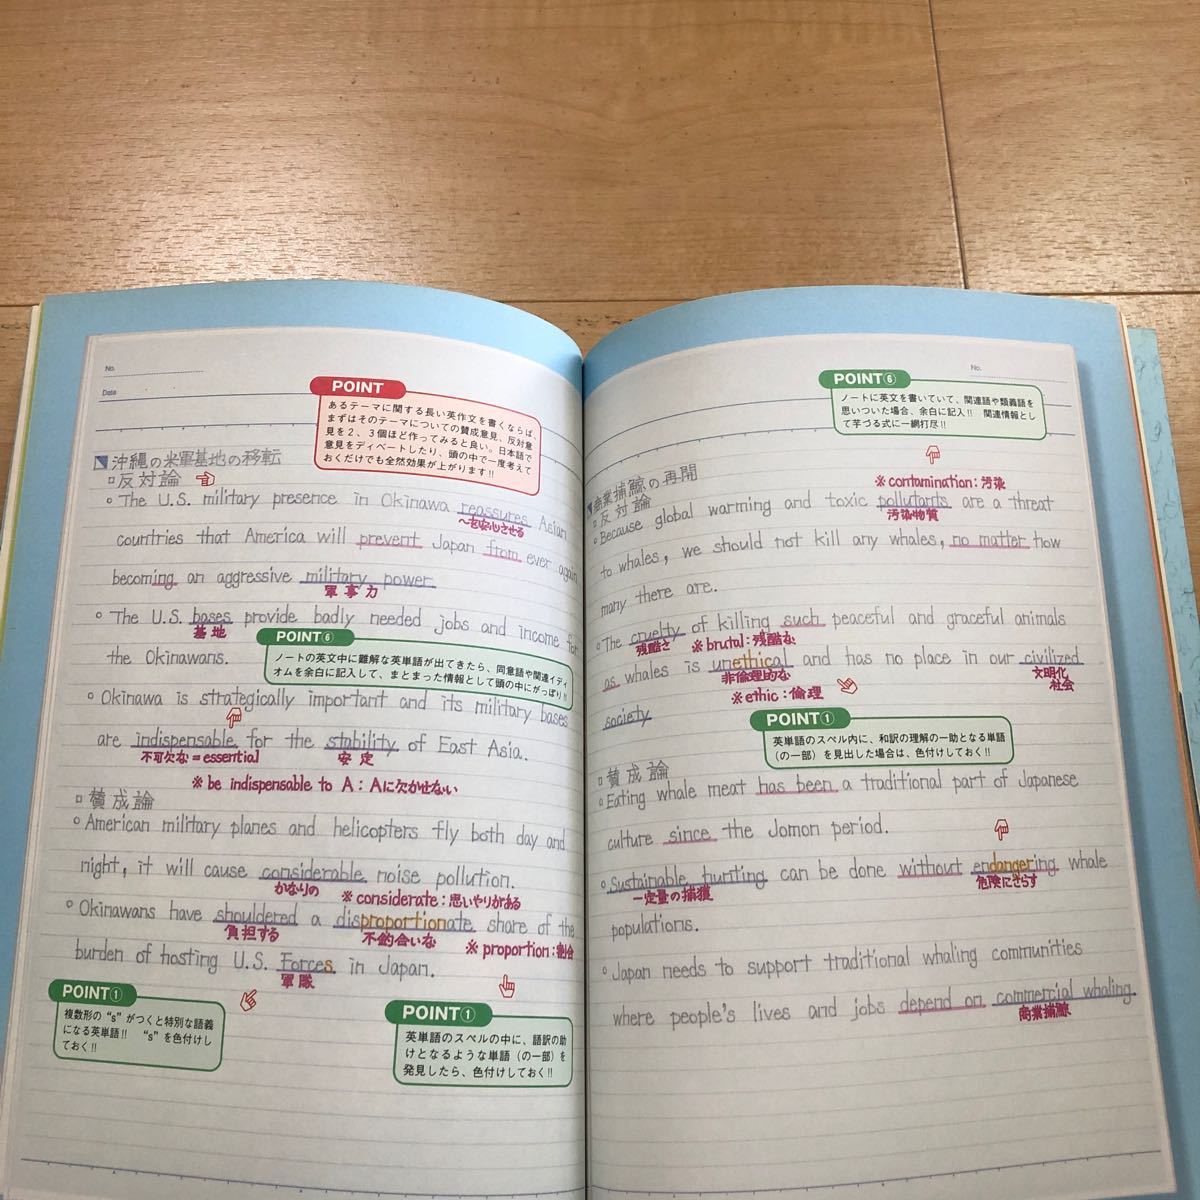 No.
Date
POINT
あるテーマに関する長い英作文を書くならば、
まずはそのテーマについての賛成意見、反対意
見を2、3個ほど作ってみると良い。日本語で
意見をディベートしたり、頭の中で一度考えて
おくだけでも全然効果が上がります!!
沖縄の米軍基地の移転
反対論
The U.S. military presence in Okinawa reassures Asian
〜を安心させる
countries that America will prevent Japan from ever again
becoming an aggressive military power.
軍事力
The U.S. bases provide badly needed jobs and income for
基地
the Okinawans.
POINT⑥
ノートの英文中に難解な英単語が出てきたら、同意語や関連イディ
オムを余白に記入して、まとまった情報として頭の中にがっぽり!!
Okinawa is strategically important and its military bases
are indispensable for the stability of East Asia.
不可欠な=essential
安定
※ be indispensable to A : Aに欠かせない
賛成論
American military planes and helicopters fly both day and
night, it will cause considerable noise pollution.
かなりの
※ considerate : 思いやりがある
Okinawans have shouldered a disproportionate share of the
負担する
不釣合いな
※ proportion : 割合
burden of hosting U.S. Forces in Japan.
軍隊
POINT①
複数形の“s”がつくと特別な語義
になる英単語!! “s”を色付けし
ておく!!
POINT①
英単語のスペルの中に、語訳の助
けとなるような単語(の一部)を
発見したら、色付けしておく!!
No.
POINT⑥
ノートに英文を書いていて、関連語や類義語を
思いついた場合、余白に記入!! 関連情報とし
て芋づる式に一網打尽!!
※ contamination : 汚染
商業捕鯨の再開
反対論
Because global warming and toxic pollutants are a threat
汚染物質
to whales, we should not kill any whales, no matter how
many there are.
The cruelty of killing such peaceful and graceful animals
残酷さ
※ brutal : 残酷な
as whales is unethical and has no place in our civilized
非倫理的な
文明化
社会
※ ethic : 倫理
society.
POINT①
英単語のスペル内に、和訳の理解の一助となる単語
(の一部)を見出した場合は、色付けしておく!!
賛成論
Eating whale meat has been a traditional part of Japanese
culture since the Jomon period.
Sustainable hunting can be done without endangering whale
一定量の捕獲
危険にさらす
populations.
Japan needs to support traditional whaling communities
where people's lives and jobs depend on commercial whaling.
商業捕鯨